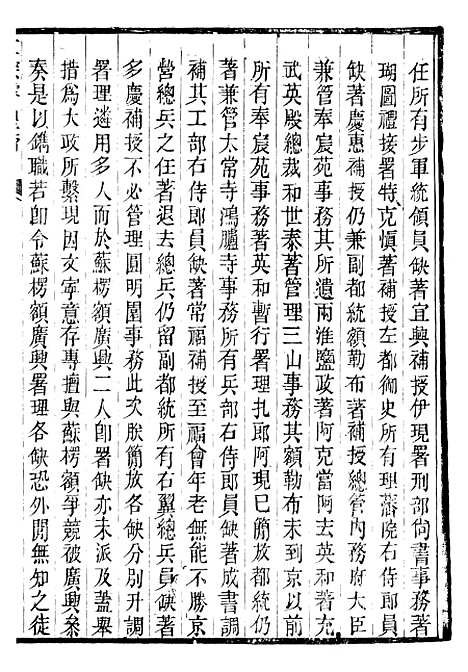 任所有步軍統領員缺著宜興補授伊現署刑部尙書事務著
瑚圖禮接署特克愼著補授左都御史所有理藩院右侍郎員
缺著慶惠補授仍兼副都統額勒布著補授總管內務府大臣
兼管奉宸苑事務其所遺兩淮鹽政著阿克當阿著充
武英殿總裁和世泰著管理三山事務其額勒布未到京以前
所有奉宸苑事務著英和暫行署理扎郎阿現已簡放都統仍
著兼管太常寺鴻臚寺事務所有兵部右侍郎員缺著成書調
補其工部右侍郎員缺著常福補授至福會年老無能不勝京
營總兵之任著退去總兵仍留副都統所有右翼總兵員缺著
多慶補授不必管理圓明園事務此次朕簡放各缺分別升調
署理遴用多人而於蘇楞額廣興二人卽署缺亦未派及蓋舉
措爲大政所繫現因文寧意存專擅與蘇楞額爭競被廣興叅
奏是以鐫職若卽令蘇楞額廣興署理各缺恐外間無知之徒